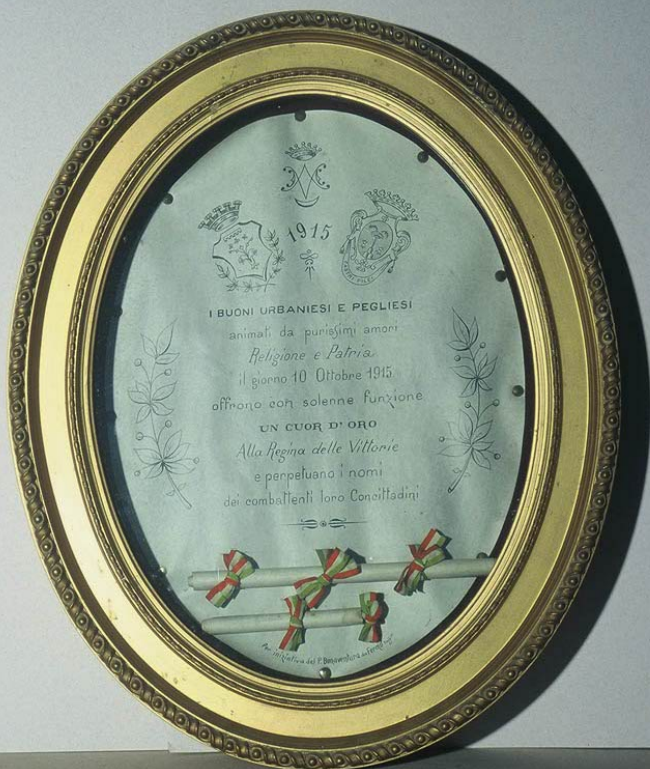 1915
I BUONI URBANIESI E PEGLIESI
animati da purissimi amori
Religione e Patria
il giorno 10 Ottobre 1915
offrono con solenne funzione
UN CUOR D'ORO
Alla Regina delle Vittorie
e perpetuano i nomi
dei combattenti loro Concittadini
Per iniziativa del P. Bonaventura da Fermo